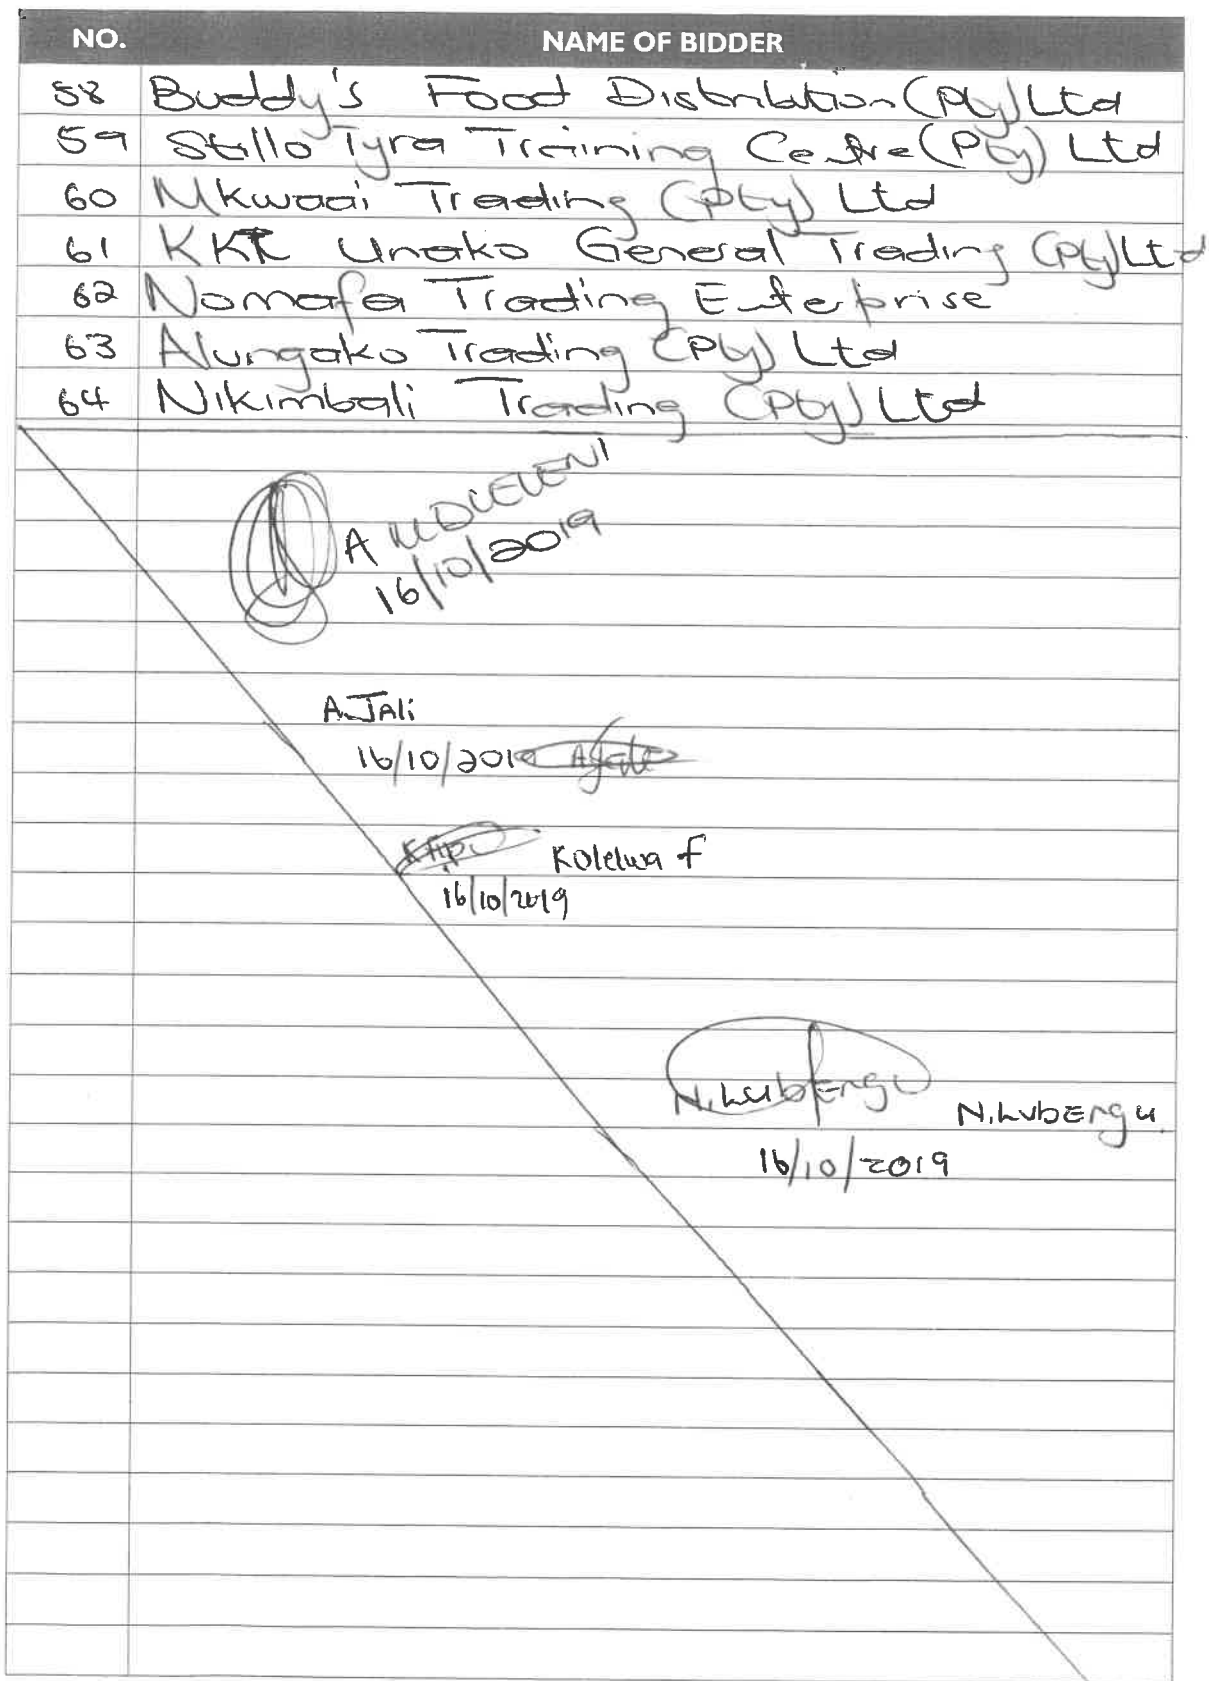 NO. NAME OF BIDDER
58 Buddy's Food Distribution (Pty) Ltd
59 Stillo Tyra Training Centre (Pty) Ltd
60 Mkwaai Trading (Pty) Ltd
61 KKT Unako General Trading (Pty) Ltd
62 Nomafa Trading Enterprise
63 Alungako Trading (Pty) Ltd
64 Nikimbali Trading (Pty) Ltd
A MDLELENI
16/10/2019
A. JALi
16/10/2019 AJali
Kolelwa F
16/10/2019
N. Lubengu N. LubEngu.
16/10/2019